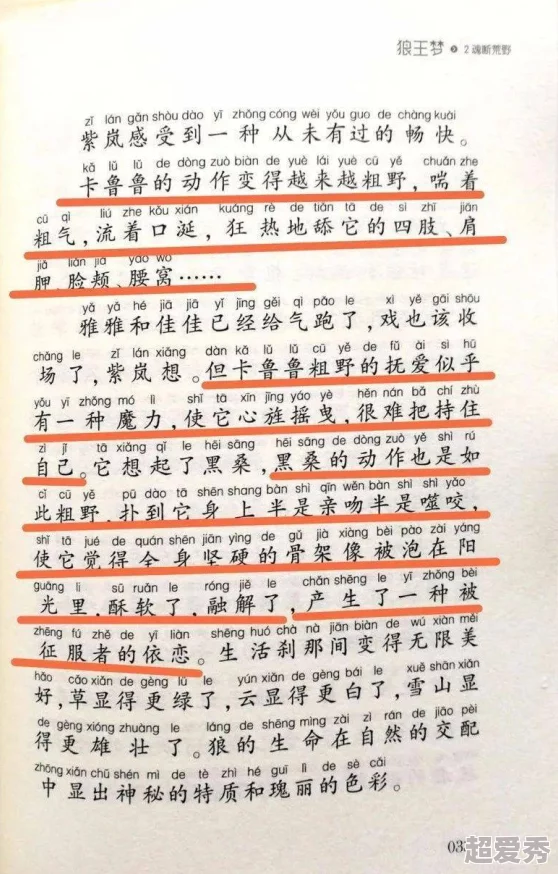 狼王梦 2 魂断荒野
zǐ lán gǎn shòu dào yī zhǒng cóng wèi yǒu guo de chàng kuài
紫岚感受到一种从未有过的畅快。
kǎ lǔ lǔ de dòng zuò biàn de yuè lái yuè cū yě chuǎn zhe
卡鲁鲁的动作变得越来越粗野，喘着
cū qì liú zhe kǒu xián kuáng rè de tiǎn tā de sì zhī jiān
粗气，流着口涎，狂热地舔它的四肢、肩
jiǎ liǎn jiá yāo wō
胛、脸颊、腰窝……
yǎ yǎ hé jiā jiā yǐ jīng gěi qì pǎo le xì yě gāi shōu
雅雅和佳佳已经给气跑了，戏也该收
chǎng le zǐ lán xiǎng dàn kǎ lǔ lǔ cū yě de fǔ ài sì hū
场了，紫岚想。但卡鲁鲁粗野的抚爱似乎
yǒu yī zhǒng mó lì shǐ tā xīn jīng yáo yè hěn nán bǎ chí zhù
有一种魔力，使它心旌摇曳，很难把持住
zì jǐ tā xiǎng qǐ le hēi sāng hēi sāng de dòng zuò yě shì rú
自己。它想起了黑桑，黑桑的动作也是如
cǐ cū yě pū dào tā shēn shang bàn shì qīn wěn bàn shì shì yǎo
此粗野，扑到它身上半是亲吻半是噬咬，
shǐ tā jué de quán shēn jiān yìng de gǔ jià xiàng bèi pào zài yáng
使它觉得全身坚硬的骨架像被泡在阳
guāng li sū ruǎn le róng jiě le chǎn shēng le yī zhǒng bèi
光里，酥软了，融解了，产生了一种被
zhēng fú zhě de yī liàn shēng huó chà nà jiān biàn de wú xiàn měi
征服者的依恋。生活刹那间变得无限美
hǎo cǎo xiǎn de gèng lǜ le yún xiǎn de gèng bái le xuě shān xiǎn
好，草显得更绿了，云显得更白了，雪山显
de gèng xióng zhuàng le láng de shēng mìng zài zì rán de jiāo pèi
得更雄壮了。狼的生命在自然的交配
zhōng xiǎn chū shén mì de tè zhì hé guī lì de sè cǎi
中显出神秘的特质和瑰丽的色彩。
超爱秀